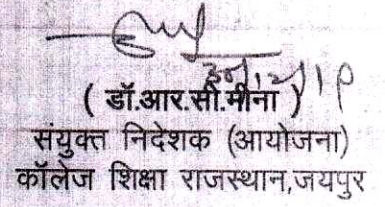 ( डॉ.आर.सी.मीना )
संयुक्त निदेशक (आयोजना)
कॉलेज शिक्षा राजस्थान,जयपुर